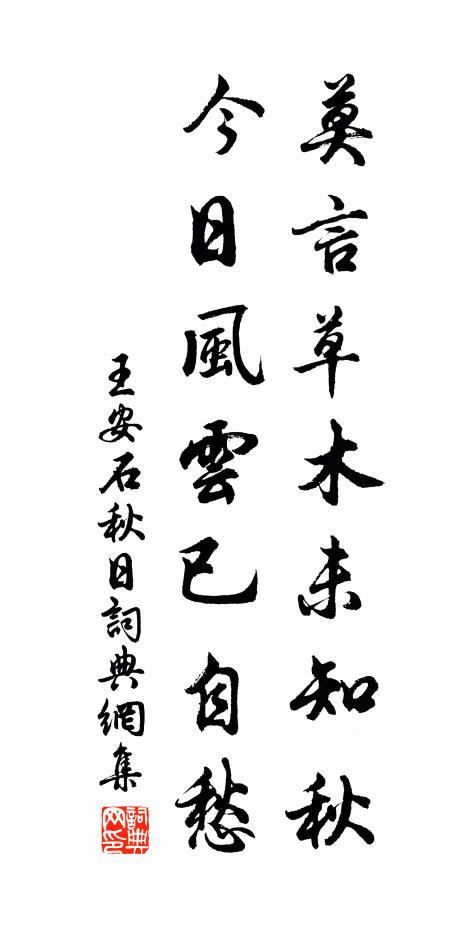 莫言草木未知秋
今日風雲已自愁
王安石秋日詞典網集
詞典網印